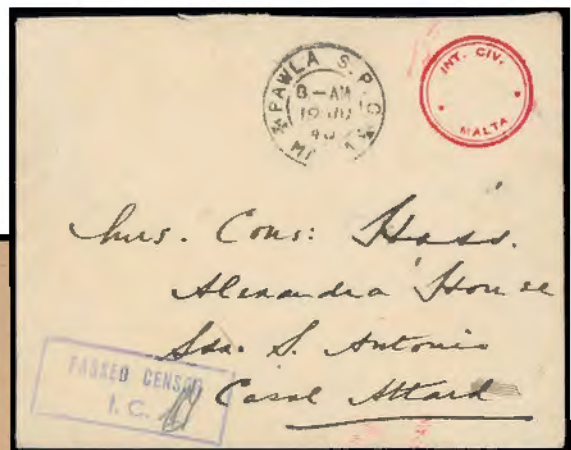 PAWLA S.P.O
8-AM
19 JU
40
INT. CIV.
MALTA
Mrs. Cons: Hass.
Alexandra House
Sda. S. Antonio
Casal Attard
PASSED CENSOR
I. C.